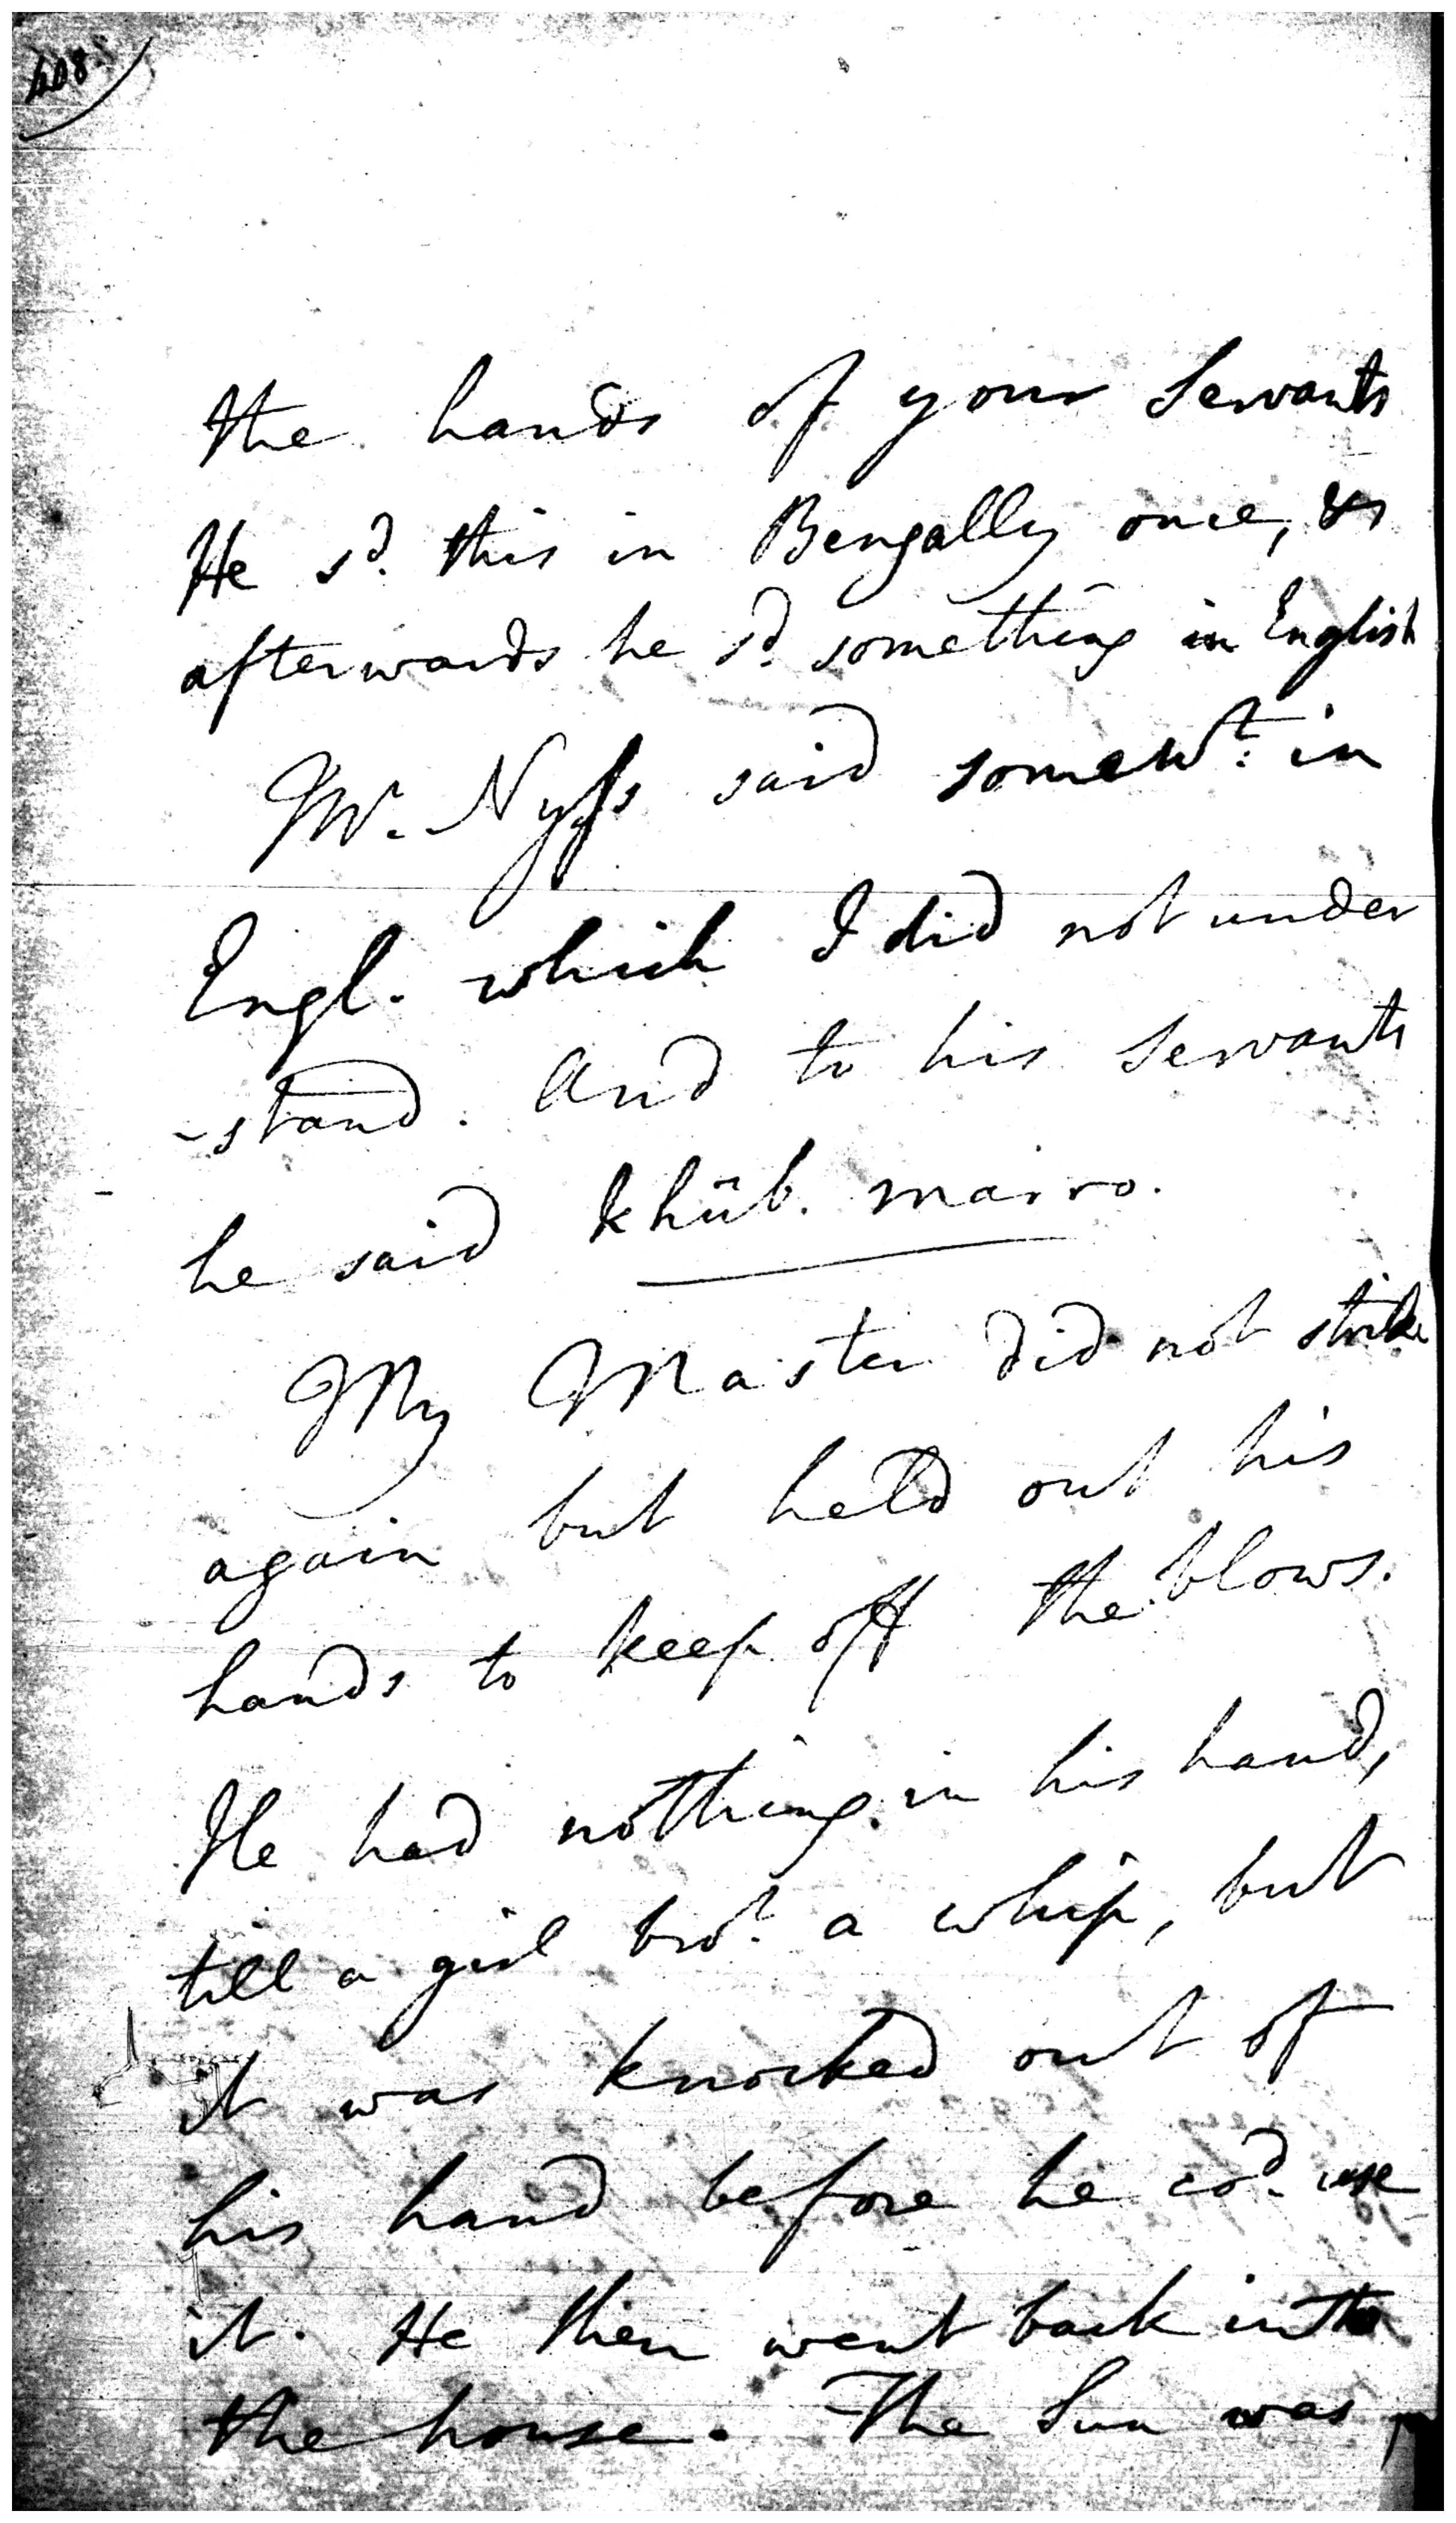 408
the hands of your Servants
He sd. this in Bengally once, &
afterwards he sd. something in English
Mr. Nyss said somewt. in
Engl. which I did not under
-stand. And to his Servants
he said khûb. mairo.
My Master did not strike
again but held out his
hands to keep off the blows.
He had nothing in his hand,
till a girl brot. a whip, but
it was knocked out of
his hand before he cod. use
it. He then went back into
the house. The Sun was